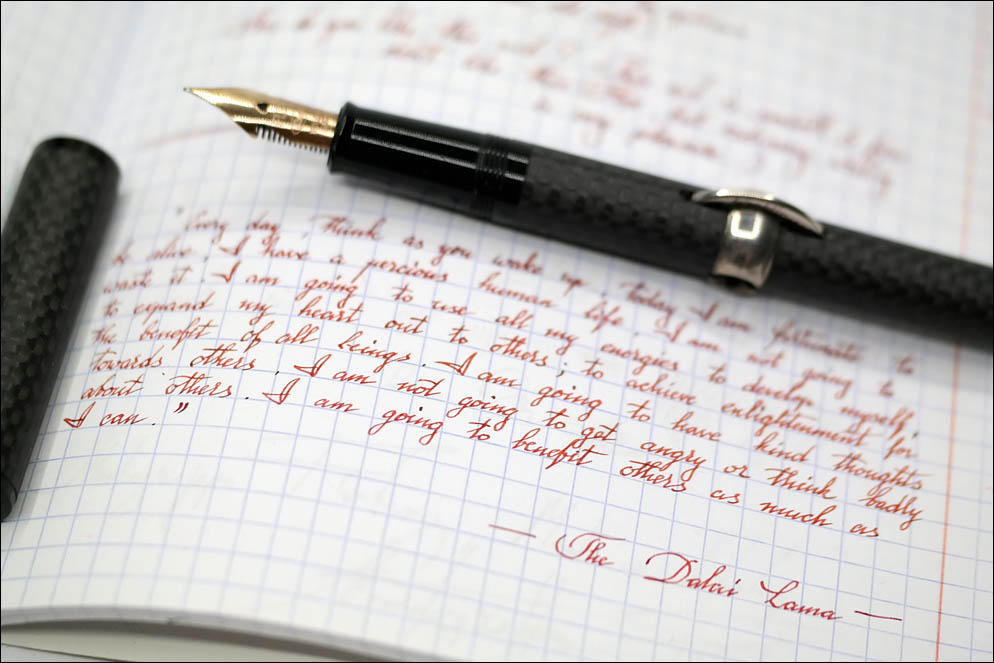 "Every day, think as you wake up, today I am fortunate to
be alive, I have a percious human life, I am not going to
waste it. I am going to use all my energies to develop myself,
to expand my heart out to others; to achieve enlightenment for
the benefit of all beings. I am going to have kind thoughts
towards others. I am not going to get angry or think badly
about others. I am going to benefit others as much as
I can."
— The Dalai Lama —